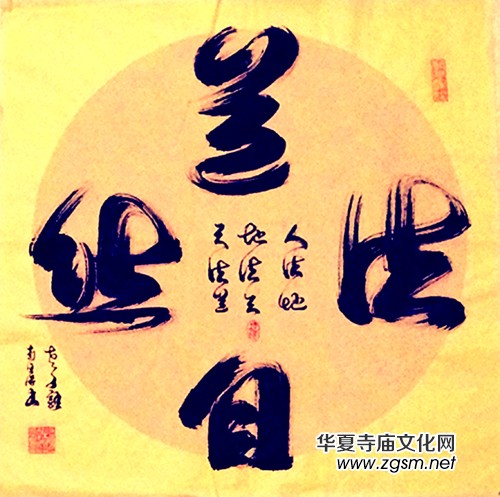 道
法
自
然
人法地
地法天
天法道
华夏寺庙文化网
www.zgsm.net